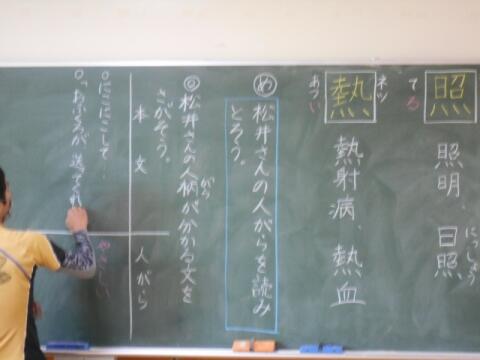 照
てる
照明、日照
にっしょう
熱
ネツ
あつい
熱射病、熱血
め
松井さんの人がらを読み
とろう。
◎松井さんの人柄が分かる文を
がら
さがそう。
本文
人がら
○にこにこして…
やさしい
○「おふくろが、送ってくれ